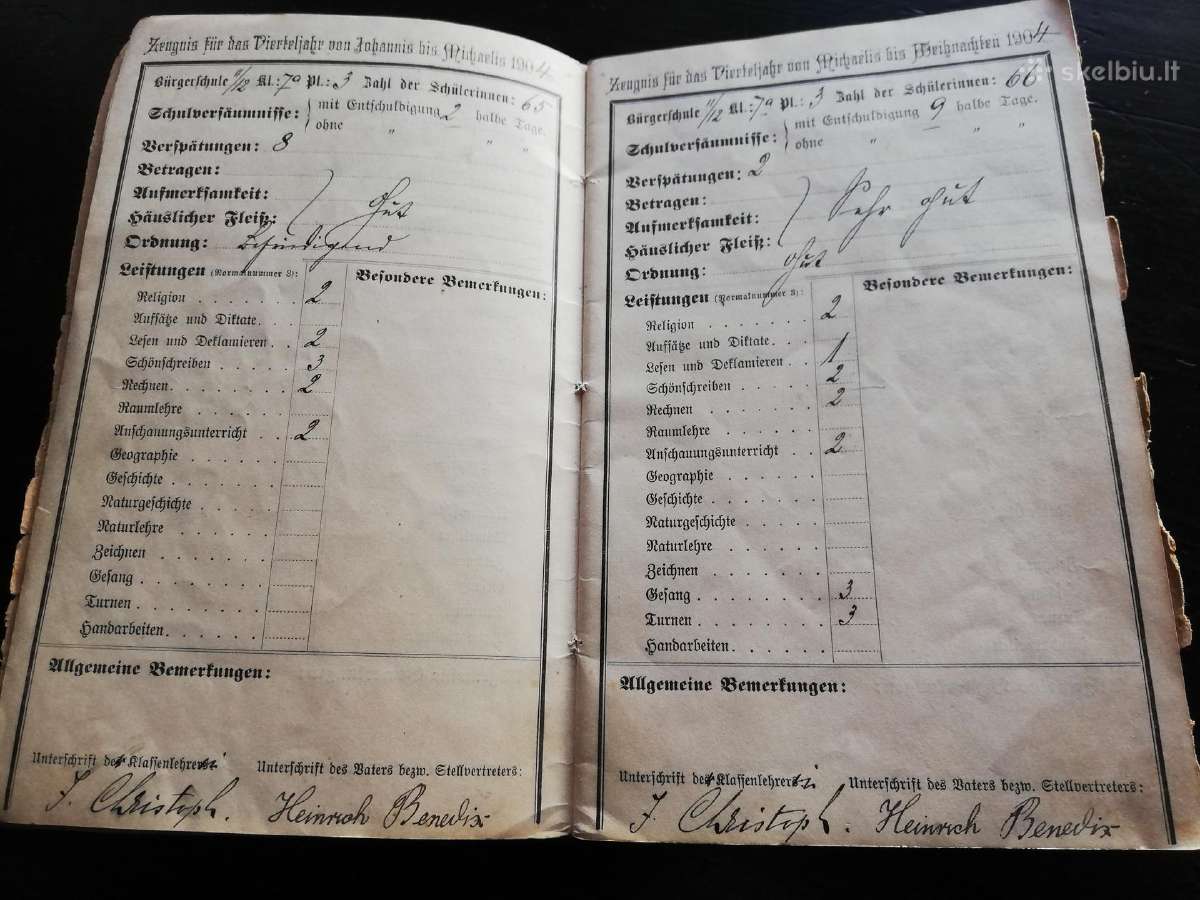 Zeugnis für das Vierteljahr von Johannis bis Michaelis 1904
Bürgerschule 11/12 Kl.: 7a Pl.: 3 Zahl der Schülerinnen: 65
Schulversäumnisse: mit Entschuldigung 2 halbe Tage.
ohne " " "
Verspätungen: 8
Betragen:
Aufmerksamkeit:
Häuslicher Fleiß: Gut
Ordnung: Befriedigend
Leistungen (Normalnummer 3): Besondere Bemerkungen:
Religion 2
Aufsätze und Diktate
Lesen und Deklamieren 2
Schönschreiben 3
Rechnen 2
Raumlehre
Anschauungsunterricht 2
Geographie
Geschichte
Naturgeschichte
Naturlehre
Zeichnen
Gesang
Turnen
Handarbeiten
Allgemeine Bemerkungen:
Unterschrift der Klassenlehrerin Unterschrift des Vaters bezw. Stellvertreters:
J. Christoph. Heinrich Benedix
Zeugnis für das Vierteljahr von Michaelis bis Weihnachten 1904
skelbiu.lt
Bürgerschule 11/12 Kl.: 7a Pl.: 3 Zahl der Schülerinnen: 66
Schulversäumnisse: mit Entschuldigung 9 halbe Tage.
ohne " – " "
Verspätungen: 2
Betragen:
Aufmerksamkeit: Sehr gut
Häuslicher Fleiß:
Ordnung: Gut
Leistungen (Normalnummer 3): Besondere Bemerkungen:
Religion 2
Aufsätze und Diktate
Lesen und Deklamieren 1
Schönschreiben 2
Rechnen 2
Raumlehre
Anschauungsunterricht 2
Geographie
Geschichte
Naturgeschichte
Naturlehre
Zeichnen
Gesang 3
Turnen 3
Handarbeiten
Allgemeine Bemerkungen:
Unterschrift der Klassenlehrerin Unterschrift des Vaters bezw. Stellvertreters:
J. Christoph. Heinrich Benedix